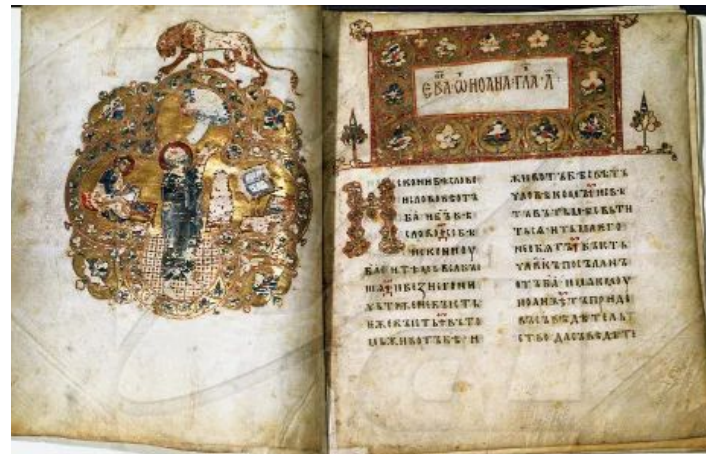 ЕВА · Ѿ ИОАНА · ГЛА · А҃
Искони бѣ слово
и слово бѣ отъ
ба҃ и бъ҃ бѣ
слово се бѣ
искони оу
ба҃ и тѣмь вьса бы
шѧ и без него ни
чьтоже не бысть
еже бысть въ то
мь животъ бѣ · и
животъ бѣ свѣтъ
чловѣкомъ и свѣ
тъ въ тьмѣ свьти
тьсѧ и тьма ѥго
не обѧтъ бысть
чл҃вкъ посъланъ
отъ ба҃ имѧ ѥмоу
иоанъ тъ приде
въ съвѣдѣтель
ство да съвѣдѣте